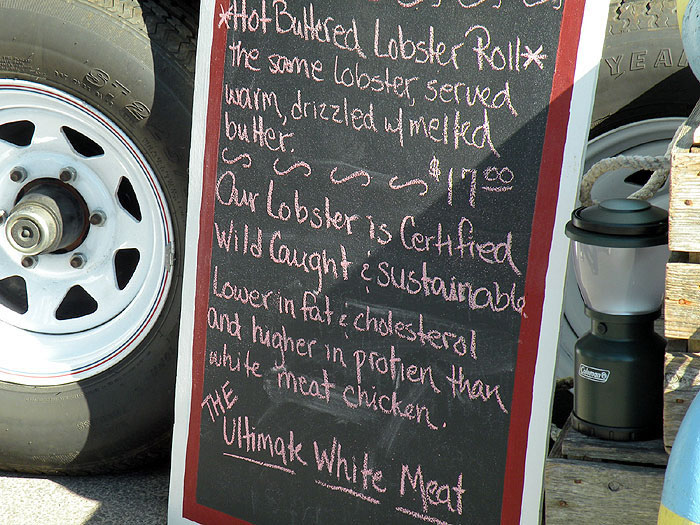 *Hot Buttered Lobster Roll*
the same lobster, served
warm, drizzled w/ melted
butter.
$17.00
Our Lobster is Certified
Wild Caught & sustainable
Lower in fat & cholesterol
and higher in protien than
white meat chicken.
THE
Ultimate White Meat
Coleman
YEA